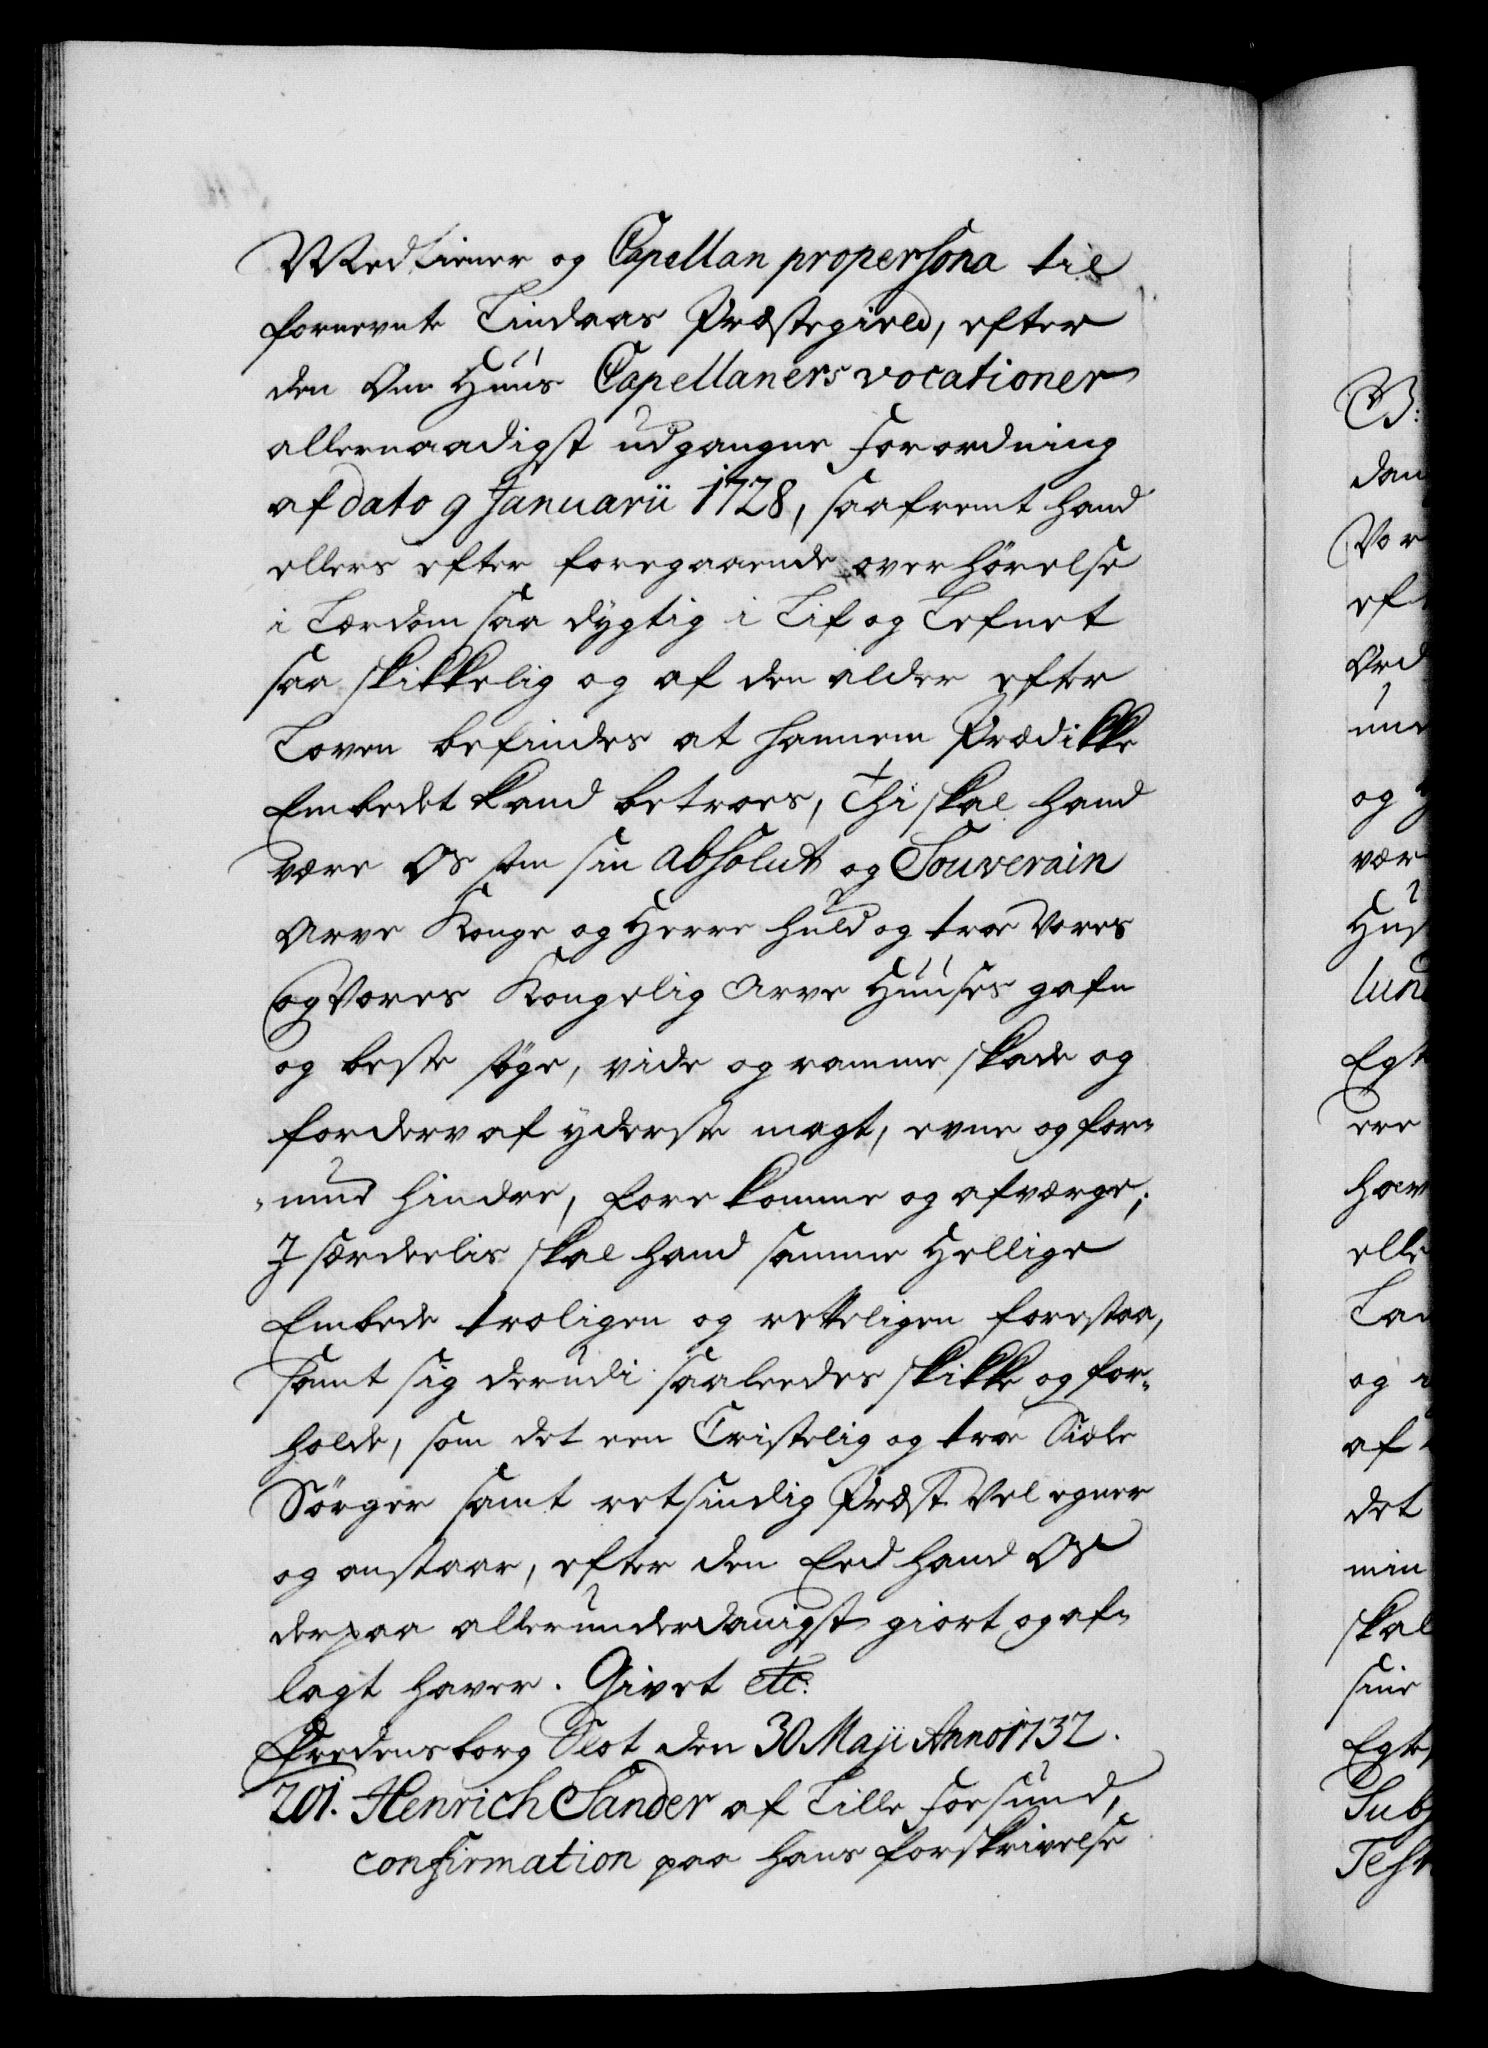 Medtiener og Capellan propersona til
fornevnte Lindaas Præstegield, efter
den Om Huus Capellaners vocationer
allernaadigst udgangne Forordning
af dato 9 Januarii 1728, saafremt hand
ellers efter foregaaende overhörelse
i Lærdom saa dygtig i Lif og Lefnet
saa skikkelig og af den alder efter
Loven befindes at hannem Prædikke
Embedet kand betroes, Thi skal hand
være Os som sin absolut og Souverain
Arve Konge og Herre huld og troe Vores
og Vores Kongelig Arve Huuses gafn
og beste søge, vide og ramme skade og
forderv af yderste magt, evne og for-
mue hindre, forekomme og afværge;
I særdeelis skal hand samme Hellige
Embede troligen og retteligen forestaa,
samt sig derudi saaleedes skikke og for-
holde, som det een Cristelig og troe Siæle
Sörger samt retsindig Præst vel egner
og anstaar, efter den Eed hand Os
derpaa allerunderdanigst giort og af-
lagt haver. Givet etc:
Fredensborg Slot den 30 Maji Anno 1732.
201. Henrich Sander af Lille Forsund,
confirmation paa hans forskrivelse
B:
dan
Vor
eft
Ord
und
og
vær
Hus
lund
Egt
ere
hav
elle
Lan
og
af
det
min
skal
sine
Egte
Subj
Test